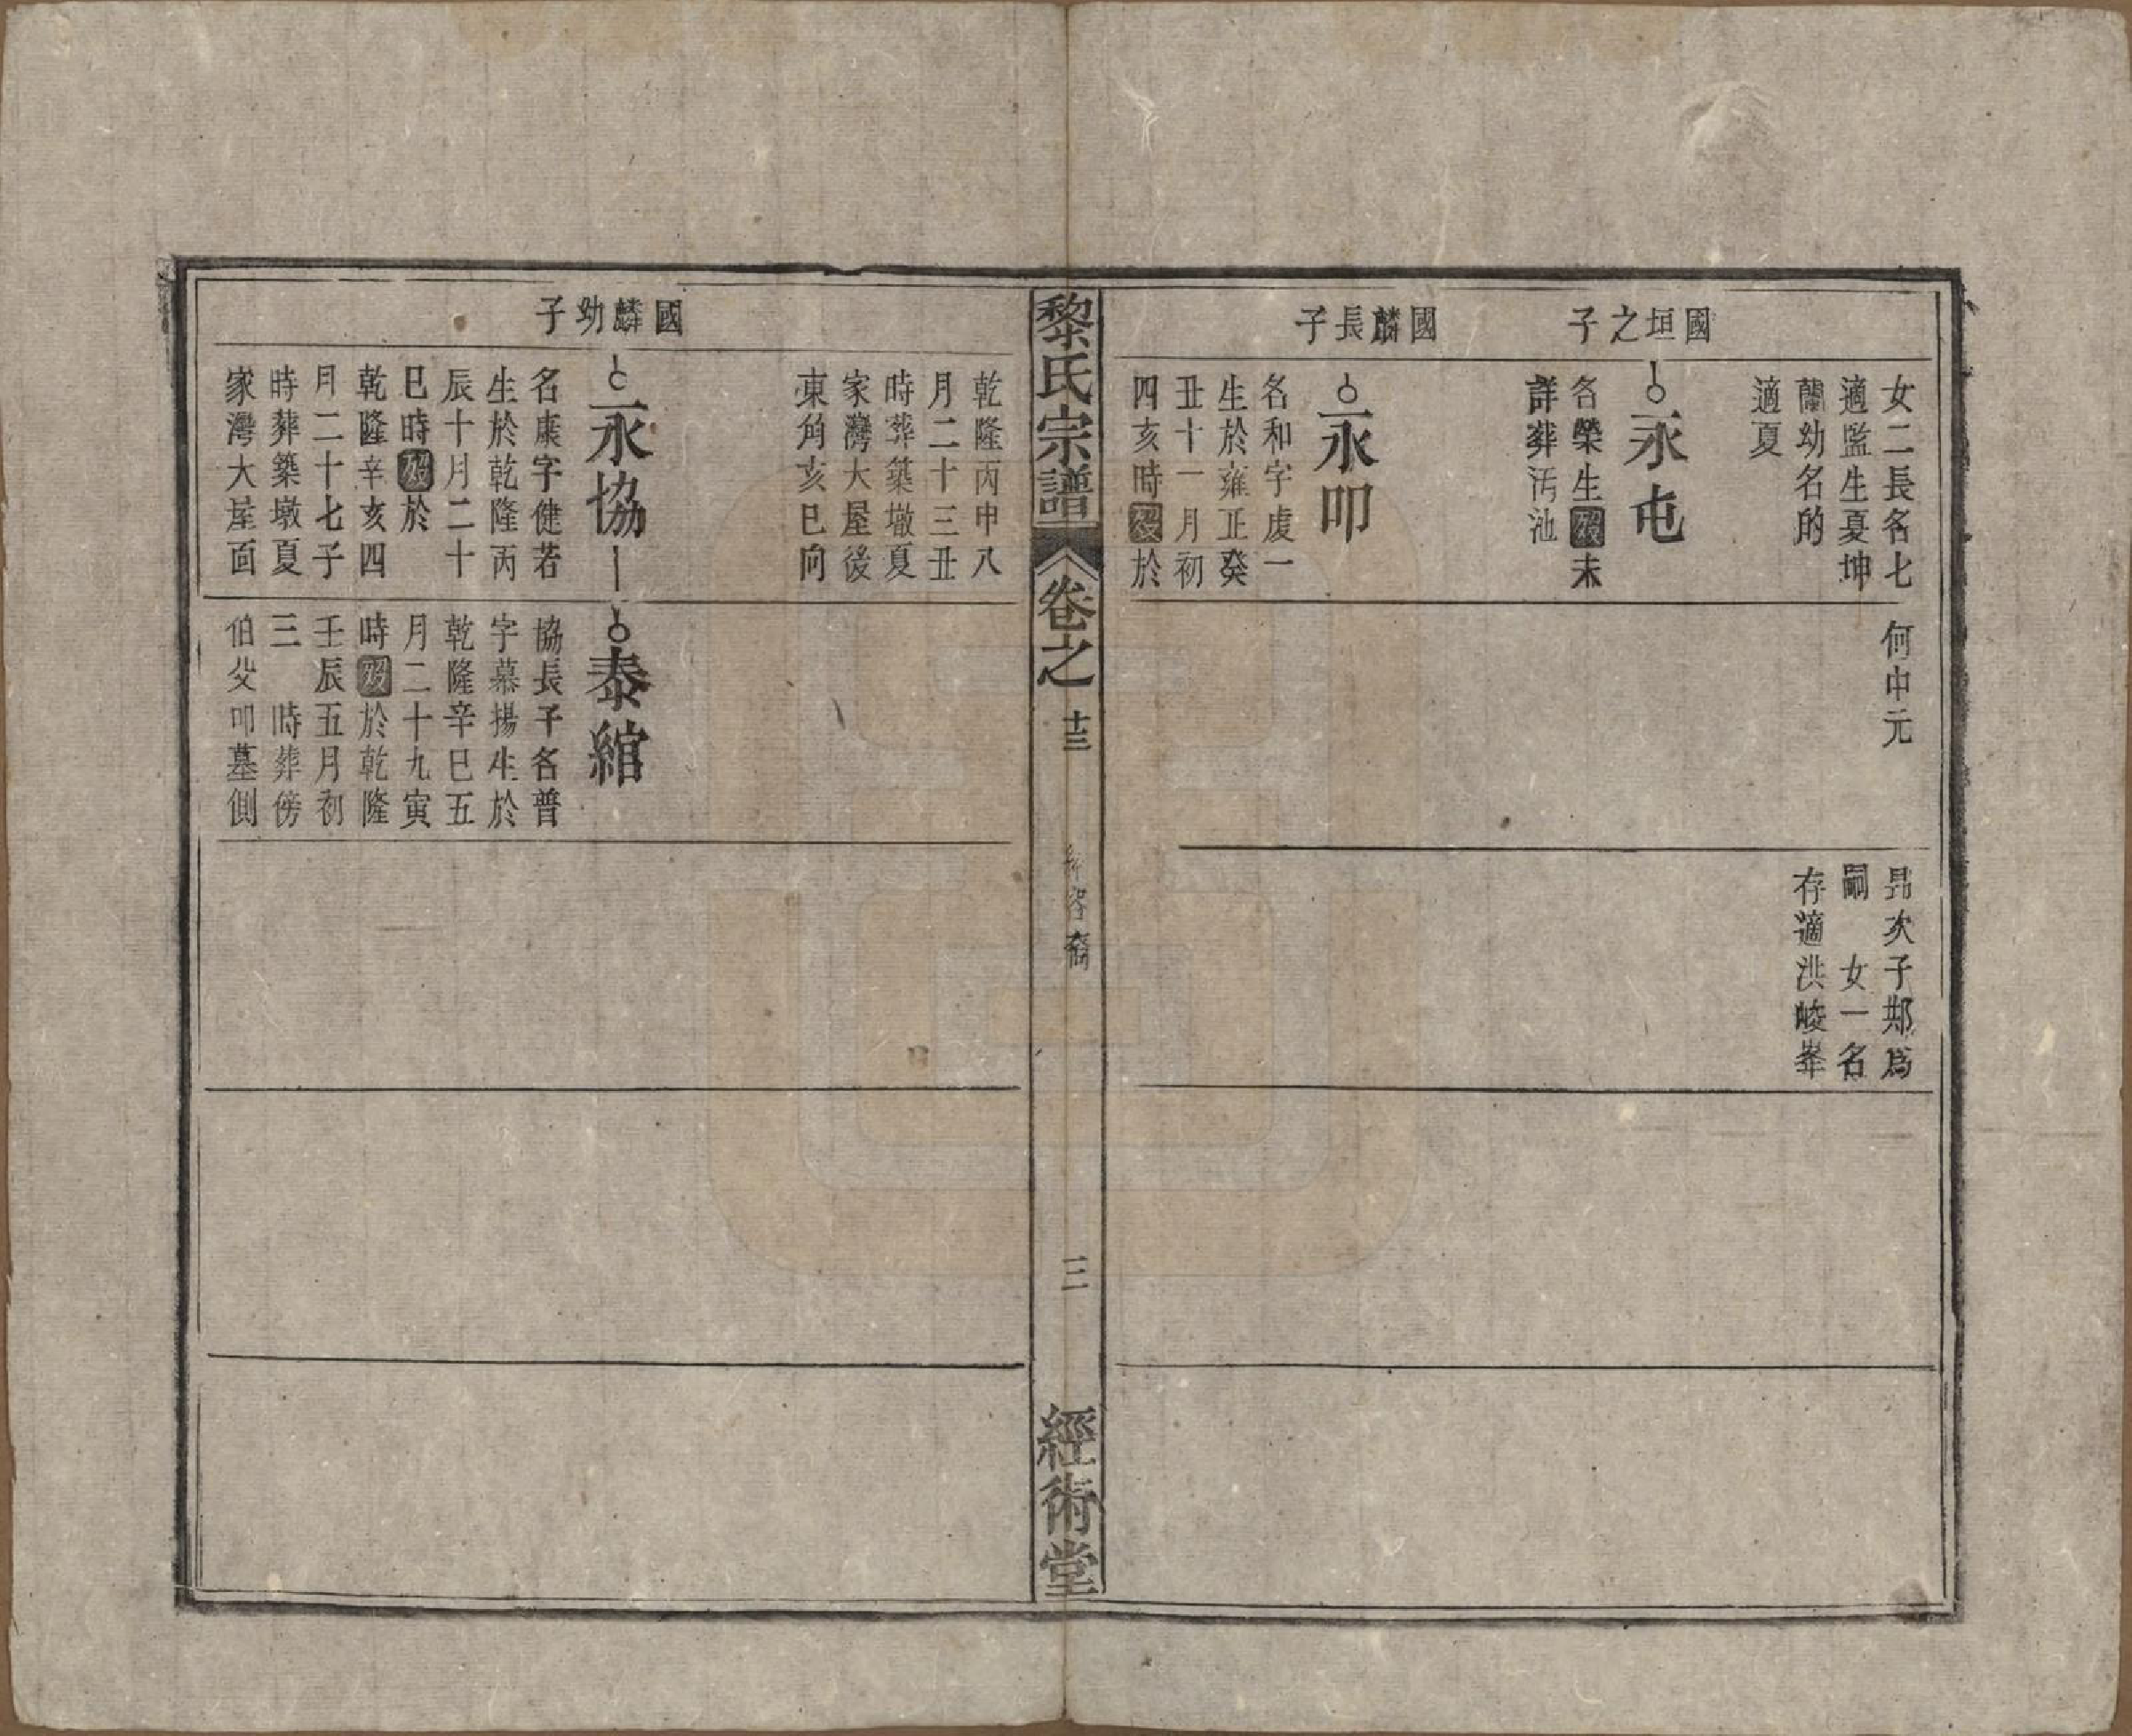 國垣之子
國麟長子
女二長名七
適監生夏坤
蘭幼名的
適夏
永屯
名榮生歿未
詳葬汚池
永叩
名和字虔一
生於雍正癸
丑十一月初
四亥時歿於
何中元
昻次子鄀為
嗣　女一名
存適洪峻峯
黎氏宗譜
卷之
十三
裔
三
經術堂
國麟幼子
乾隆丙申八
月二十三丑
時葬築墩夏
家灣大屋後
東角亥巳向
永協
名康字健若
生於乾隆丙
辰十月二十
巳時歿於
乾隆辛亥四
月二十七子
時葬築墩夏
家灣大屋面
泰綰
協長子名普
字慕揚生於
乾隆辛巳五
月二十九寅
時歿於乾隆
壬辰五月初
三　時葬傍
伯父叩墓側